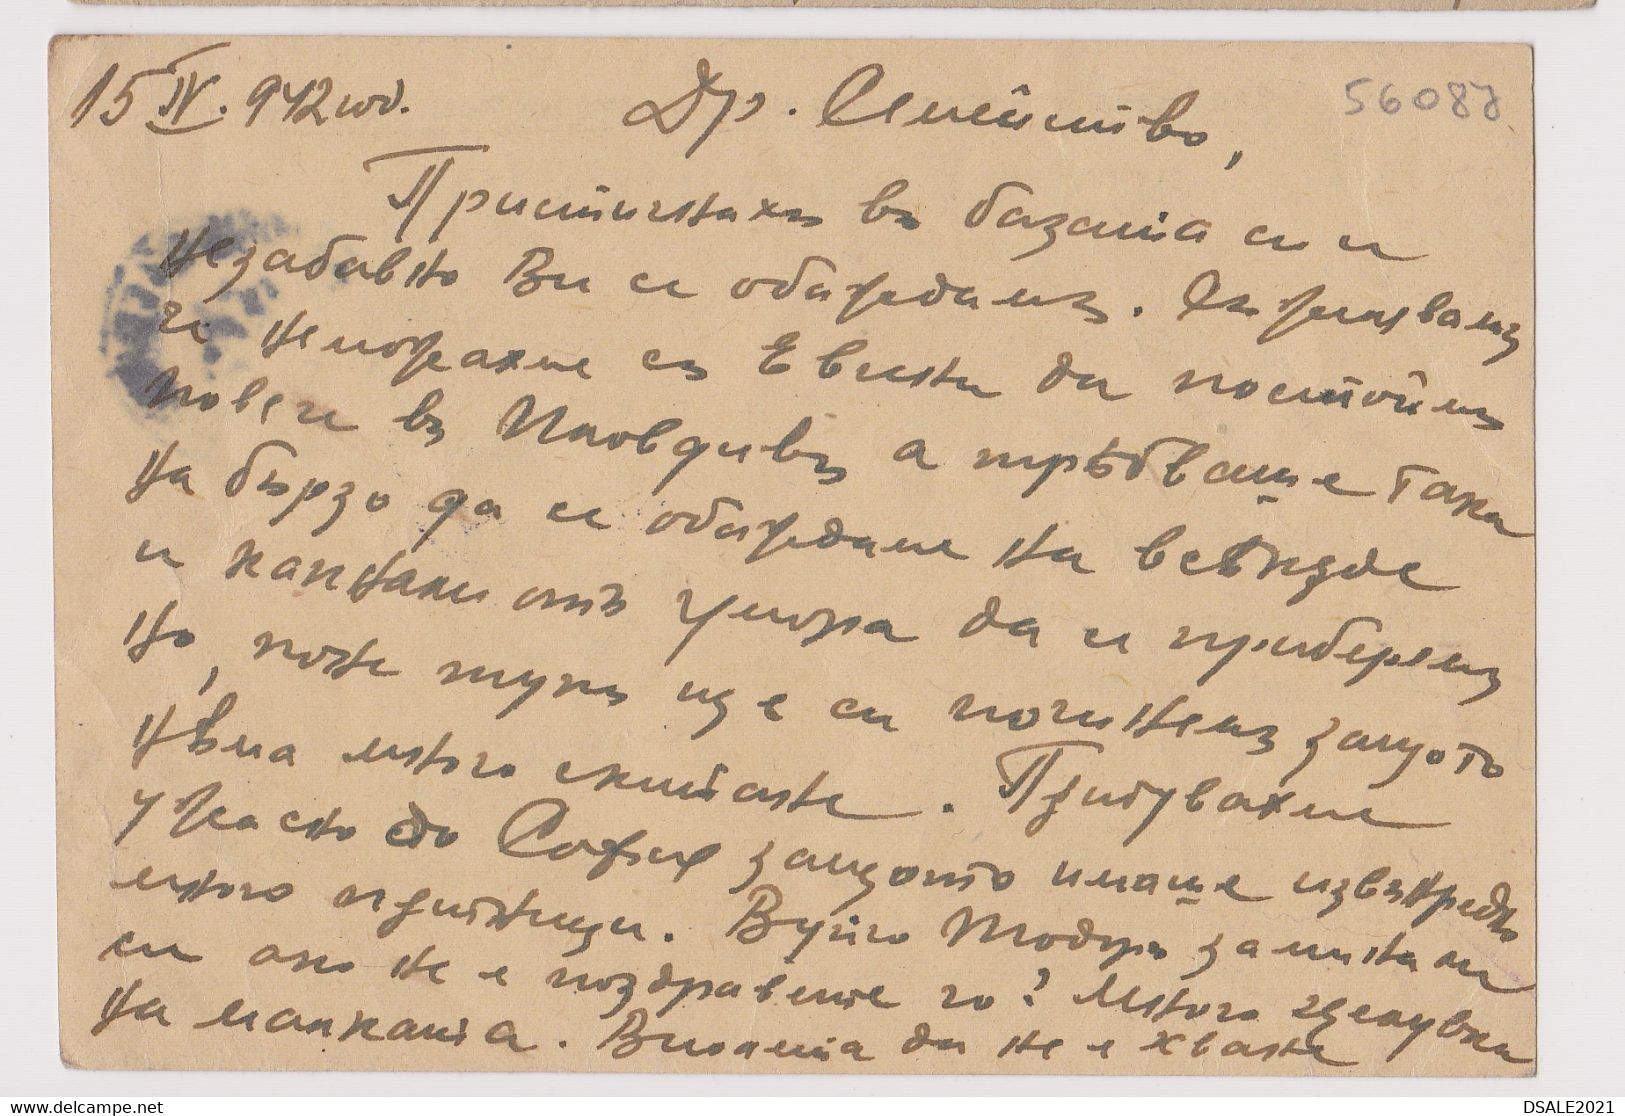 15 IV. 942 год.
Др. Семейство,
56087
Пристигнахъ въ базата си и
незабавно Ви се обаждамъ. Съжалявамъ
че неможахме съ Евгени да постоимъ
повече въ Пловдивъ а трѣбваше така
на бързо да се обаждаме на всѣкѫде
и капнали отъ умора да се приберемъ
но, поне тукъ ще си починемъ защото
нѣма много скитане. Пѫтувахме
ужасно до София защото имаше извънредно
много пѫтници. Вуйчо Тодоръ замина ли
си ако не е поздравете го? Много целувки
на малката. да не е
DSALE2021